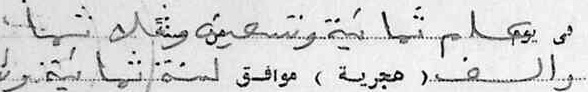 فى يوم عام ثمانية وتسعين وثلاث ثما
والف (هجرية) موافق لسنة ثمانية و